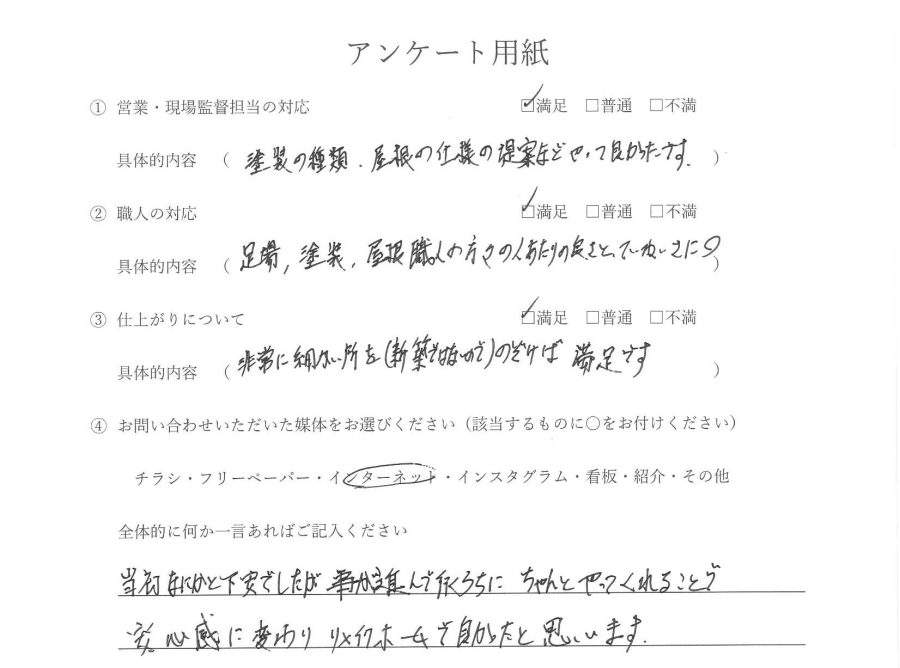 アンケート用紙
① 営業・現場監督担当の対応 ☑満足 □普通 □不満
具体的内容 （ 塗装の種類、屋根の仕様の提案などやって良かったです. ）
② 職人の対応 ☑満足 □普通 □不満
具体的内容 （ 足場, 塗装, 屋根職人の方々の人あたりの良さと、ていねいさに○ ）
③ 仕上がりについて ☑満足 □普通 □不満
具体的内容 （ 非常に細かい所を(新築ではないので)のぞけば 満足です ）
④ お問い合わせいただいた媒体をお選びください（該当するものに〇をお付けください）
チラシ・フリーペーパー・インターネット・インスタグラム・看板・紹介・その他
全体的に何か一言あればご記入ください
当初なにかと不安でしたが 事が進んで行くうちに ちゃんとやってくれることで
安心感に変わり リメイクホームで良かったと思います.